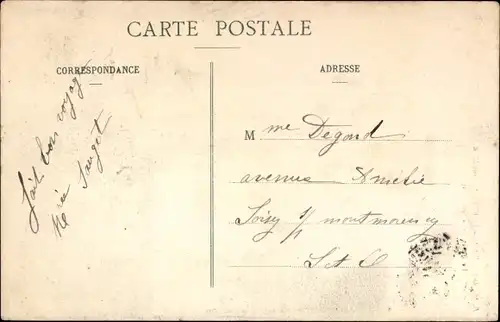 CARTE POSTALE
CORRESPONDANCE
ADRESSE
fait bon voyage
M me Degond
avenue Amélie
Soisy s/ montmorency
S et O